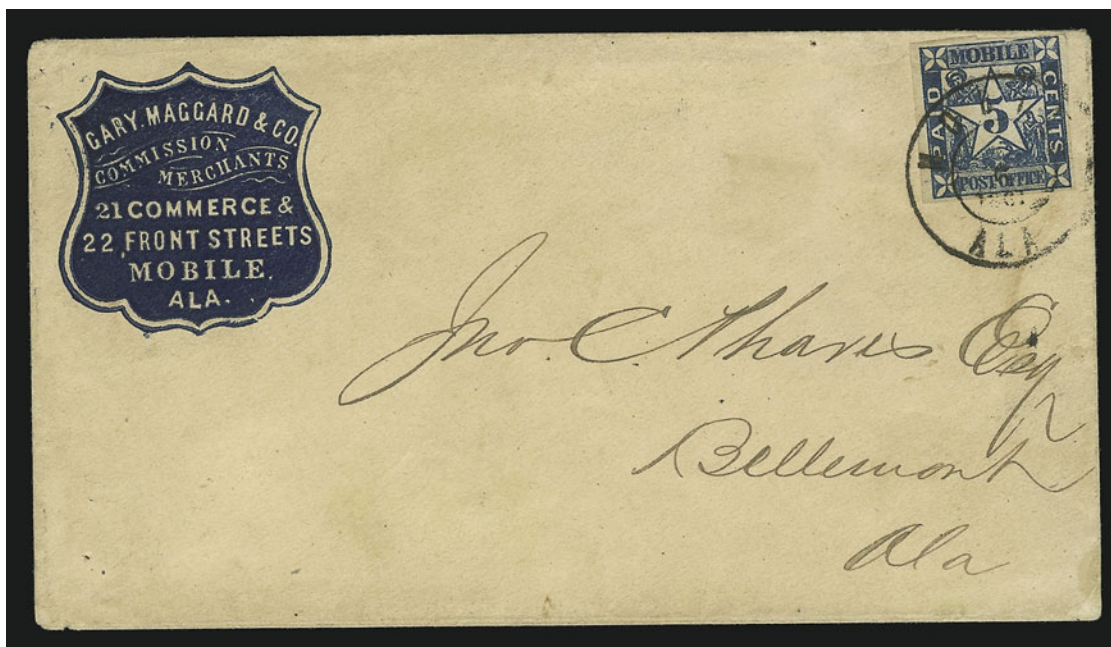 GARY. MAGGARD & CO.
COMMISSION
MERCHANTS
21 COMMERCE &
22, FRONT STREETS
MOBILE.
ALA.
MOBILE
PAID
5
CENTS
POST OFFICE
ALA
Jno. C Thaves Esq
Bellemont
Ala